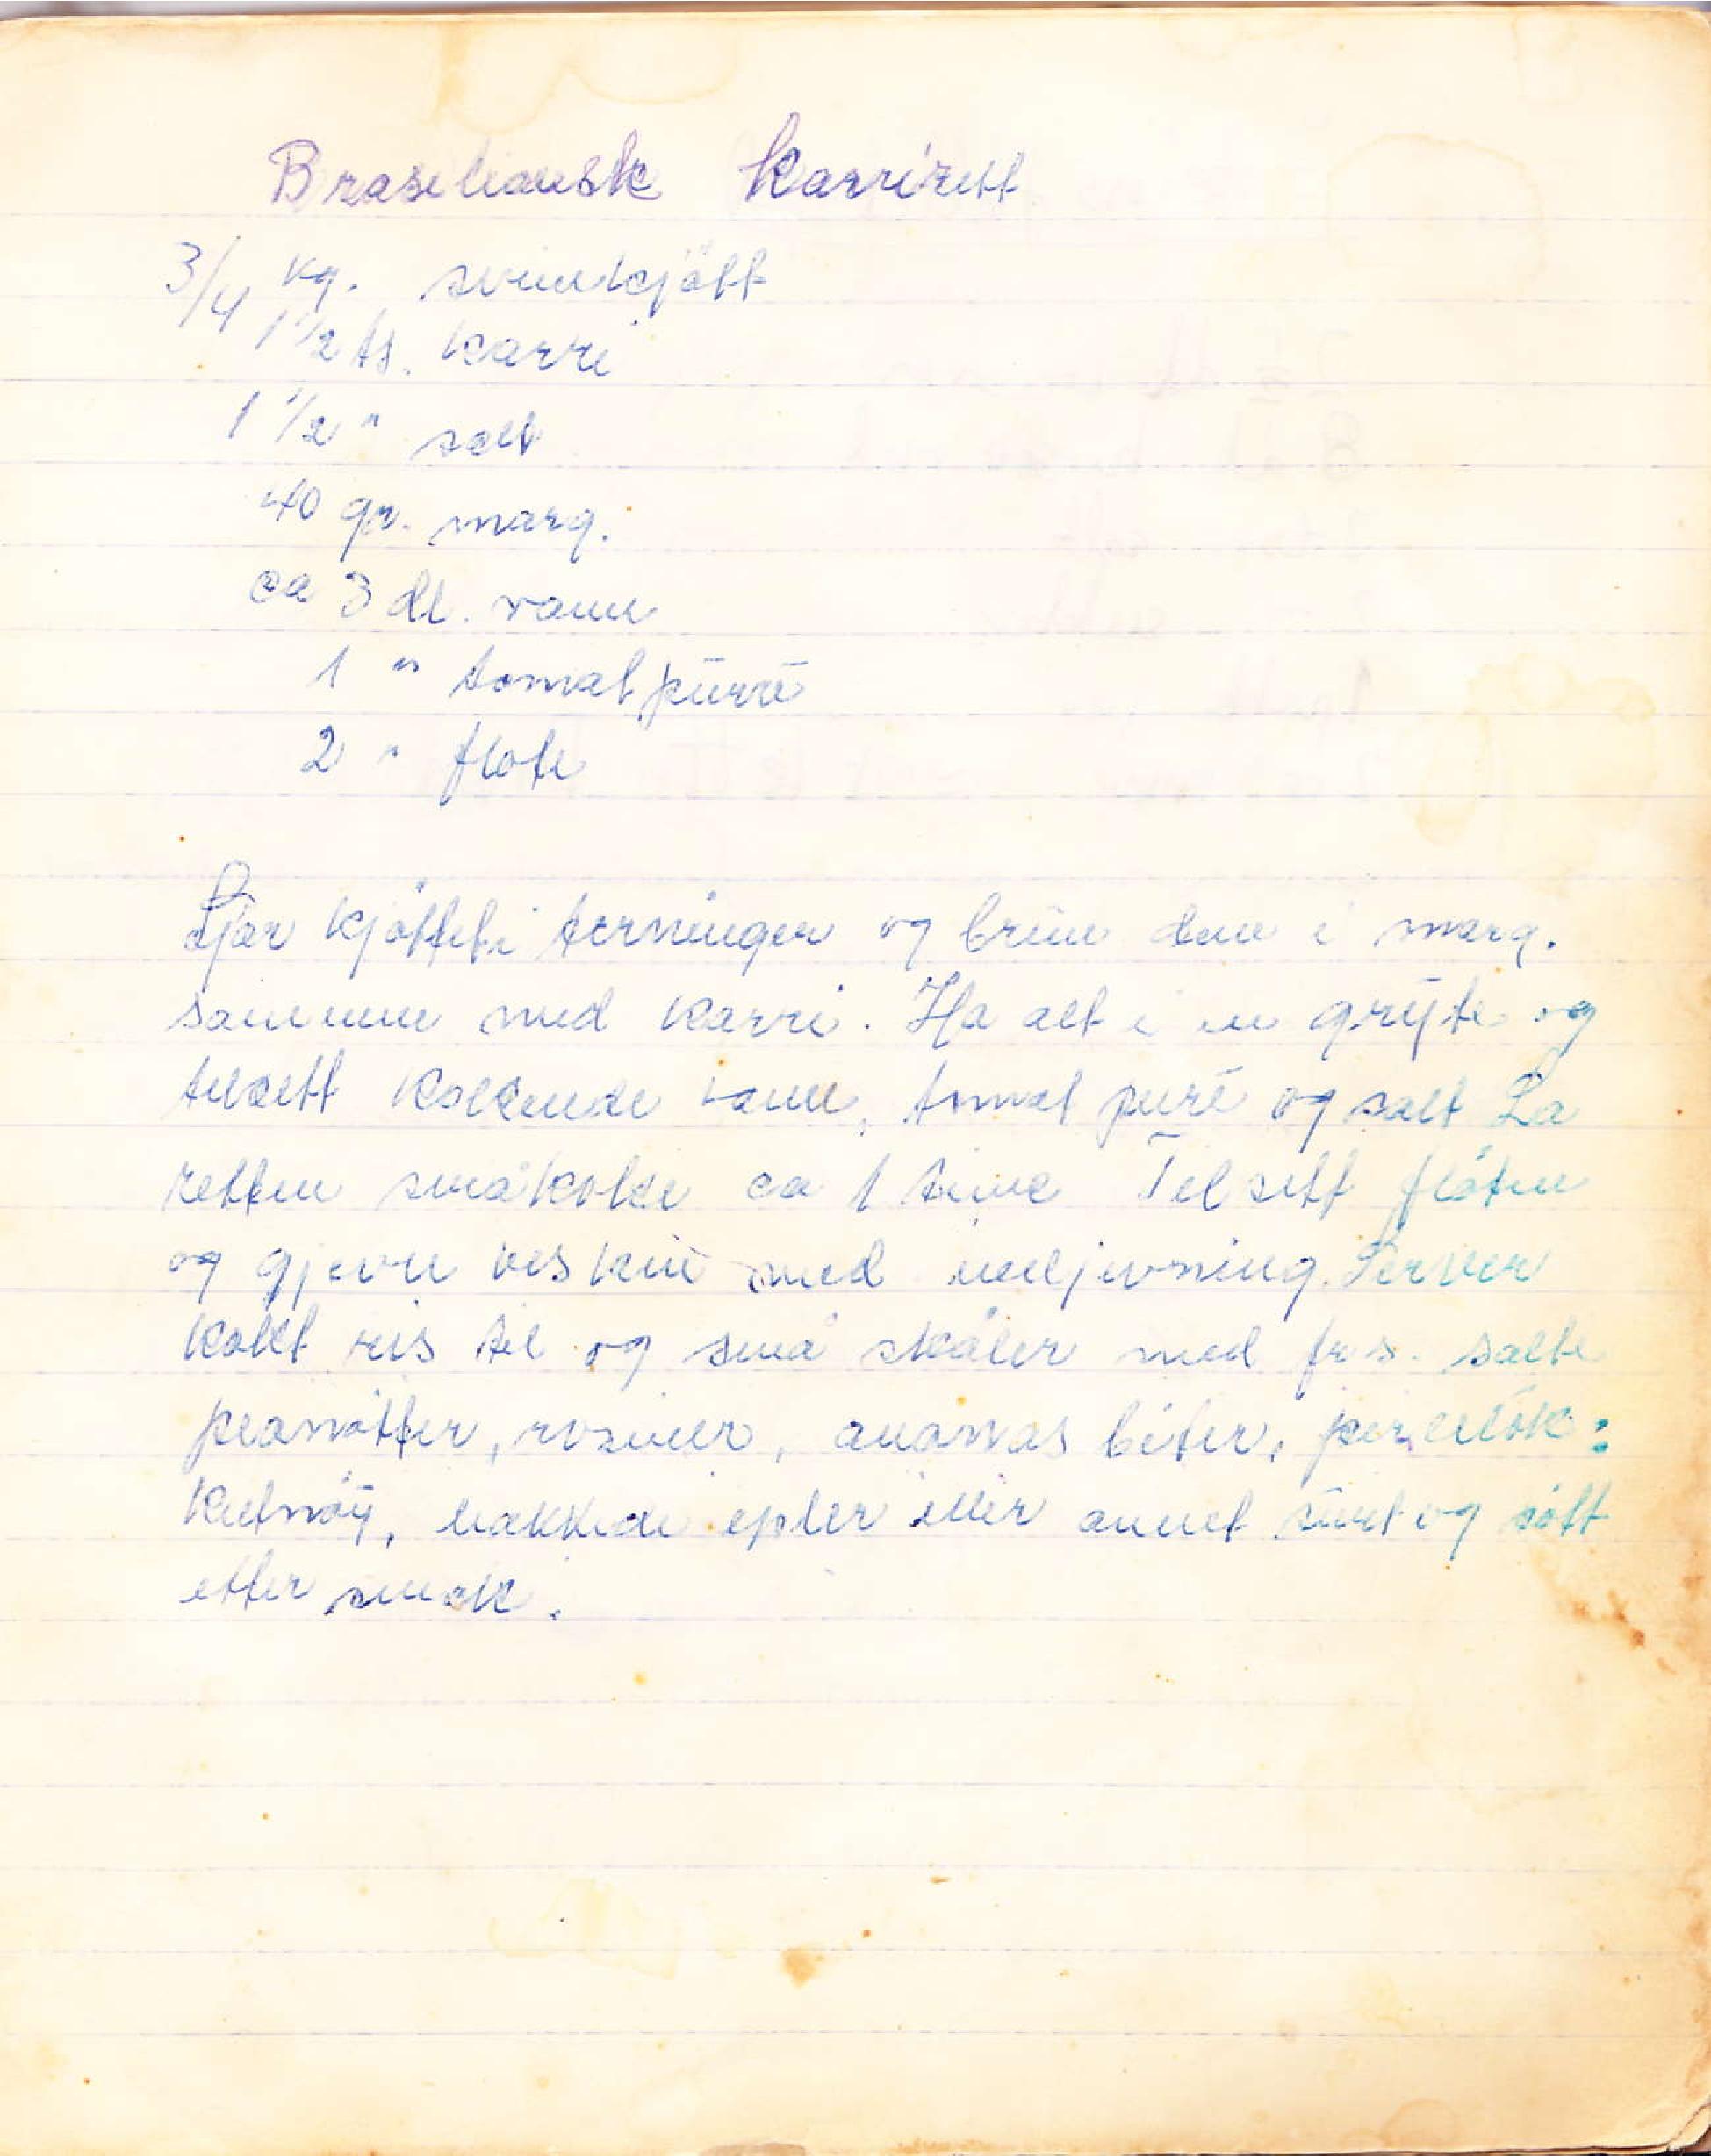 Brasiliansk Karrirett
3/4 kg. svinekjött
1 1/2 ts. karri
1 1/2 " salt
40 gr. marg.
ca 3 dl. vann
1 " tomatpürré
2 " fløte
Skjær kjöttet i terninger og brün dem i marg.
sammen med karri. Ha alt i en grÿte og
tilsett kokende vann, tomat puré og salt La
retten småkoke ca 1 time Tilsett flöten
og gjevn veskin med meljevning. Server
kokt ris til og små skåler med f.eks. salte
peanötter, rosiner, ananas biter, perlelök:
Ketnöÿ, hakkede epler eller annet sürt og sött
etter smak.